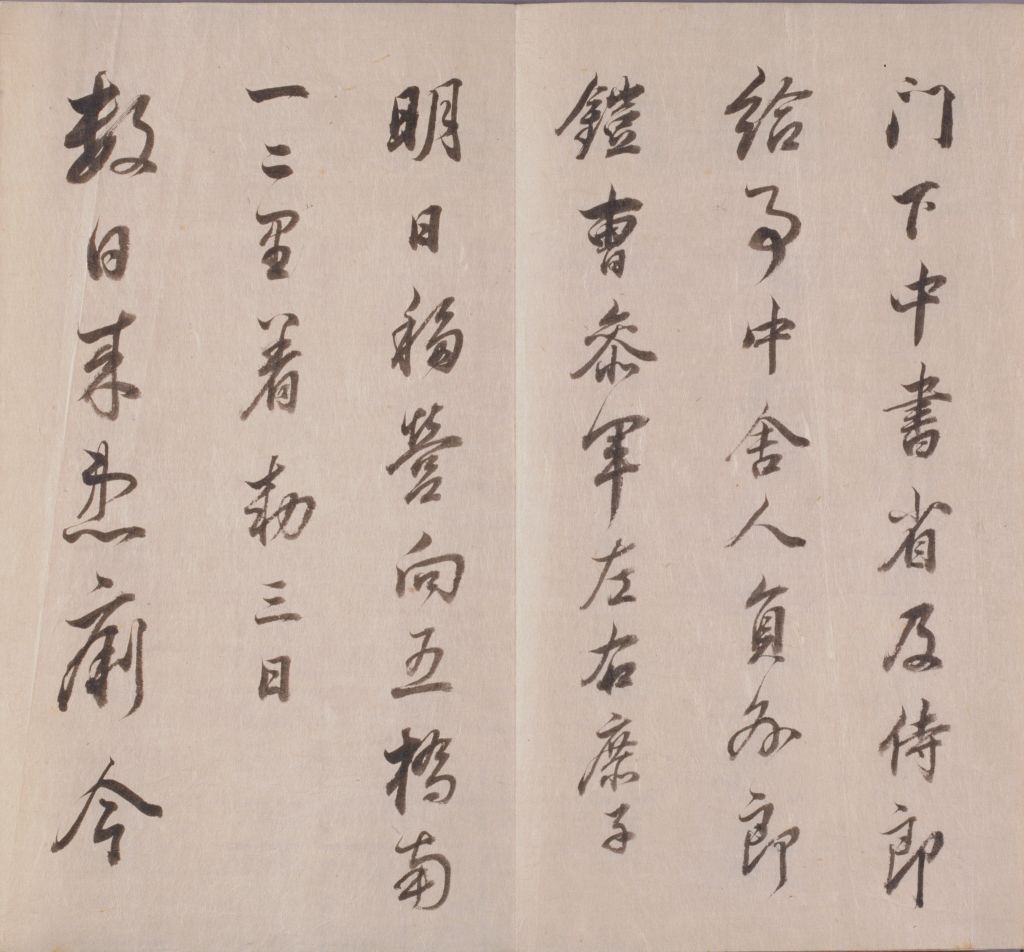 門下中書省及侍郎
給事中舍人員外郎
鎧曹叅軍左右庶子
明日移營向五橋南
一二里着勅三日
數日来患痢今